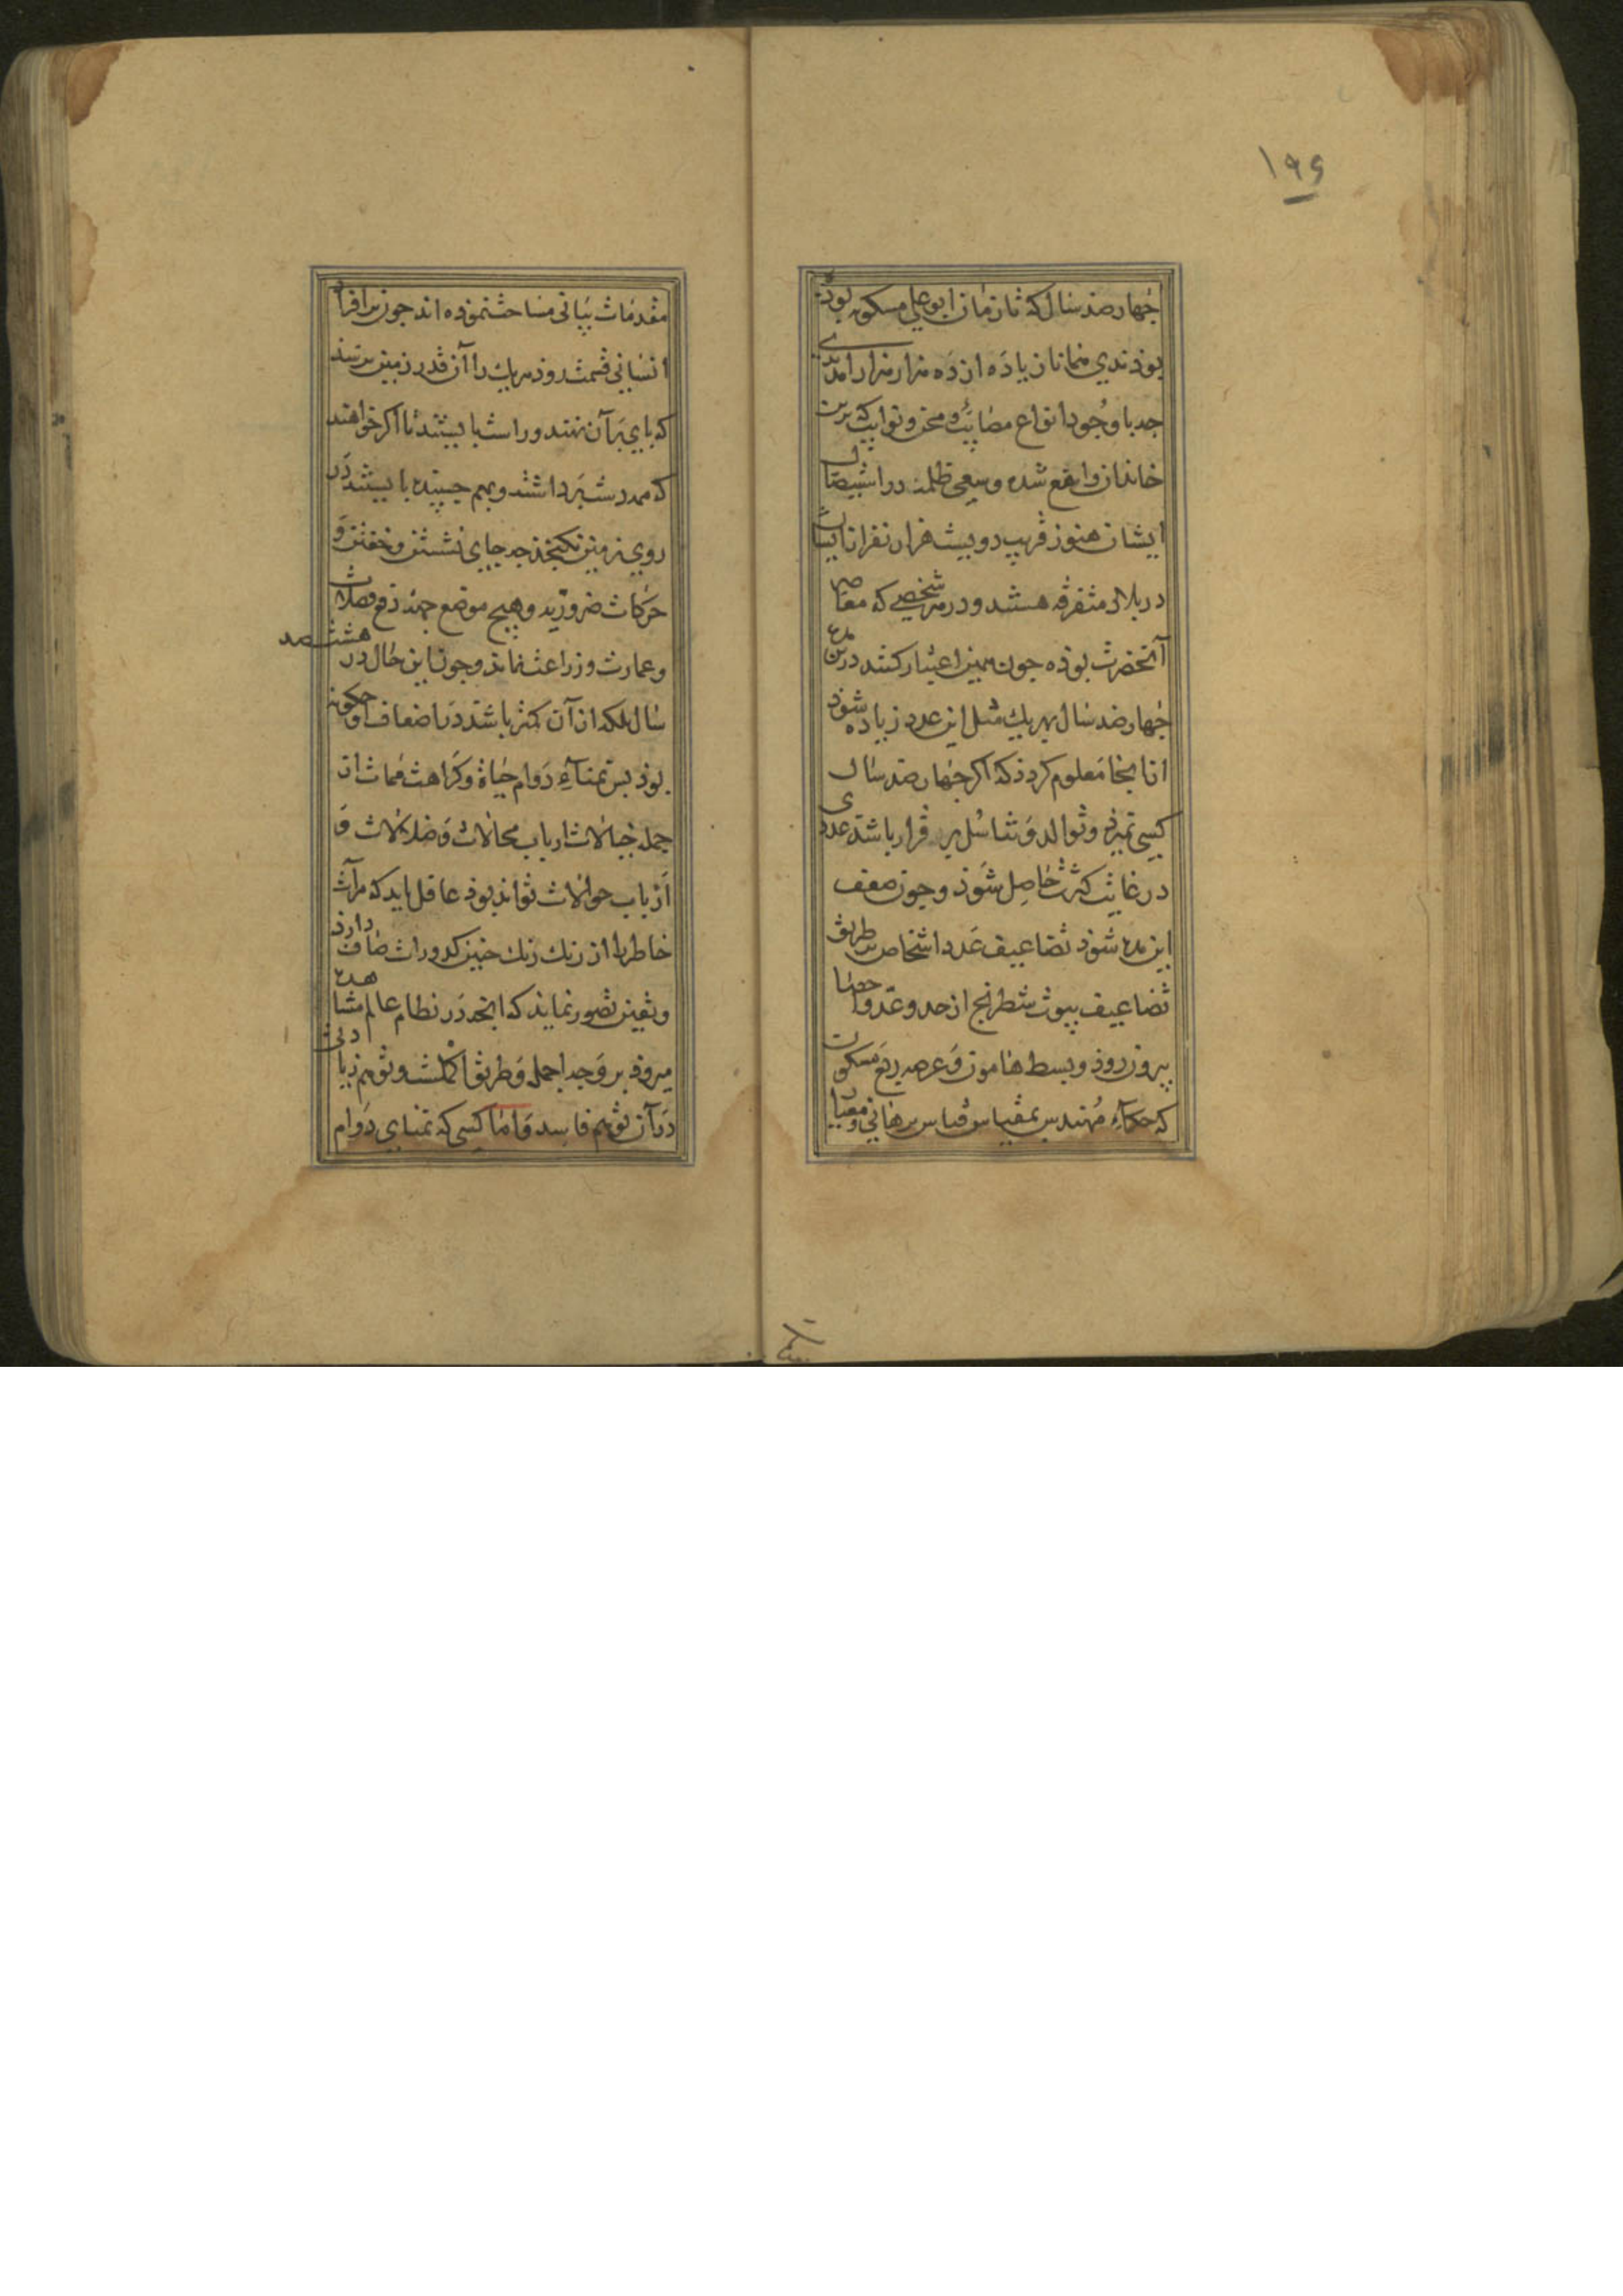 ۱۹۶
جهارصد سال که تا زمان ابوعلی مسکویه بوده
بوذندی همانا زیاده از ده هزار هزار امدندی
جه با وجود انواع مصایب و محن و نوایب که برین
خاندان واقع شده و سعی ظلمه در استیصال
ایشان هنوز قریب دویست هزار نفر از ایشان
در بلاد متفرقه هستند و در هر شخصی که معاصر
آنحضرت بوذه جون همین اعتبار کنند درین مده
جهارصد سال بهر یک مثل این عدد زیاده شوذ
از اینجا معلوم کردذ که اکر جهارصد سال
کسی نمیرذ و توالد و تناسل بر قرار باشذ عددی
در غایت کثرت حاصل شوذ و جون ضعف
این مده شوذ تضاعیف عدد اشخاص بر طریق
تضاعیف بیوت شطرنج از حد و عد و احصا
بیرون روذ و بسط هامون و عرصه ربع مسکون
که حکماء مهندس بمقیاس قیاس برهانی و معیار
مقدمات بیانی مساحت نموذه اند جون بر افراد
انسانی قسمت روذ هر یک را آن قدر زمین نرسذ
که پای بر آن نهند و راست بایستند تا اکر خواهند
که همه دست برداشته و بهم جسپیده بایستند در
روی زمین نکنجند جه جای نشستن و خفتن و
حرکات ضروریه و هیچ موضع جهت دفع فضلات
و عمارت و زراعت نماند و جون این حال در هشتصد
سال بلکه از آن کمتر باشد در اضعاف او جکونه
بوذ بس تمناء دوام حیاة و کراهت ممات از
جمله خیالات ارباب محالات و ضلالات و
ارباب جهالات تواند بوذ عاقل باید که مرآت
خاطر را از زنک جنین کدورات صافی دارذ
و یقین تصور نماید که انچه در نظام عالم مشاهده
میروذ بر وجه اجمل و طریق اکملست و توهم زیادتی
در آن توهم فاسد و اما کسی که تمنای دوام